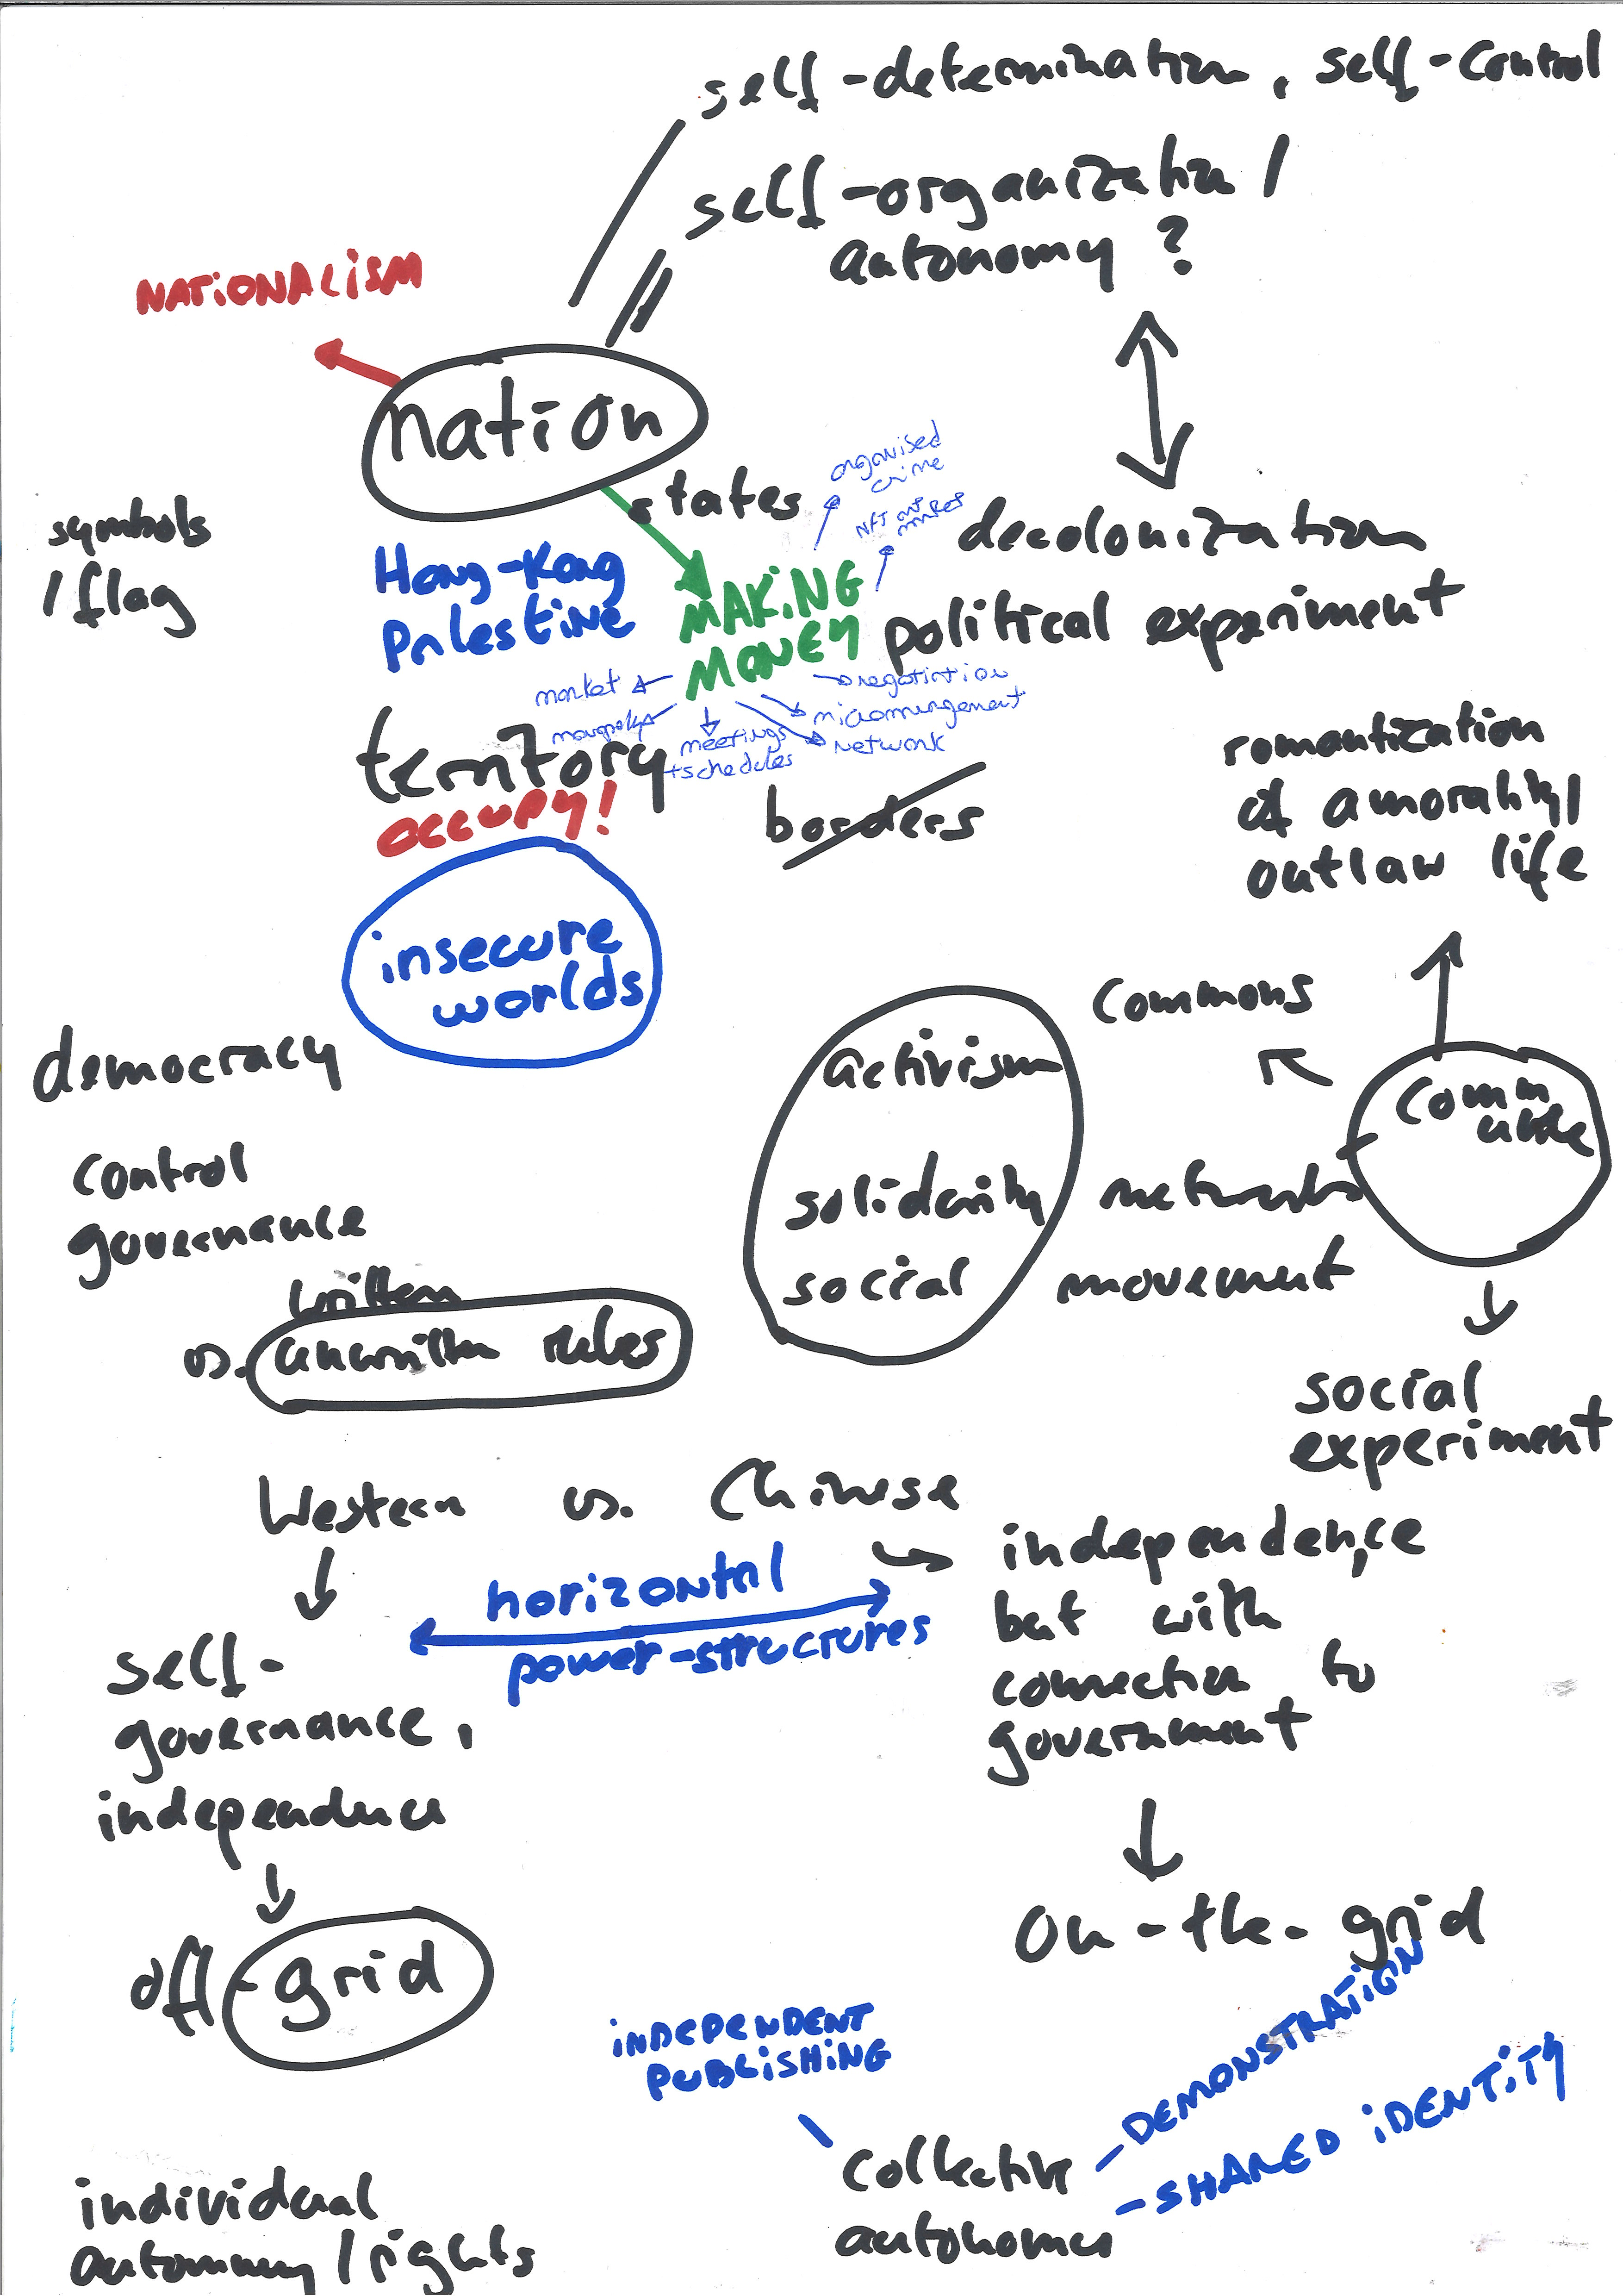 self-determination, self-control
self-organization /
autonomy ?
NATIONALISM
nation
states
organised
crime
NFT art
market
symbols
/ flag
Hong-Kong
Palestine
MAKING
MONEY
decolonization
political experiment
market
monopoly
meetings
+schedules
negotiation
micromanagement
network
territory
OCCUPY!
borders
romantization
of amorality/
outlaw life
insecure
worlds
democracy
control
governance
written
vs. unwritten rules
commons
activism
solidarity networks
social movement
comm
une
social
experiment
Western vs. Chinese
horizontal
power-structures
self-
governance,
independence
independence
but with
connection to
government
off-grid
on-the-grid
INDEPENDENT
PUBLISHING
DEMONSTRATION
-SHARED IDENTITY
collective
autonomy
individual
autonomy / rights